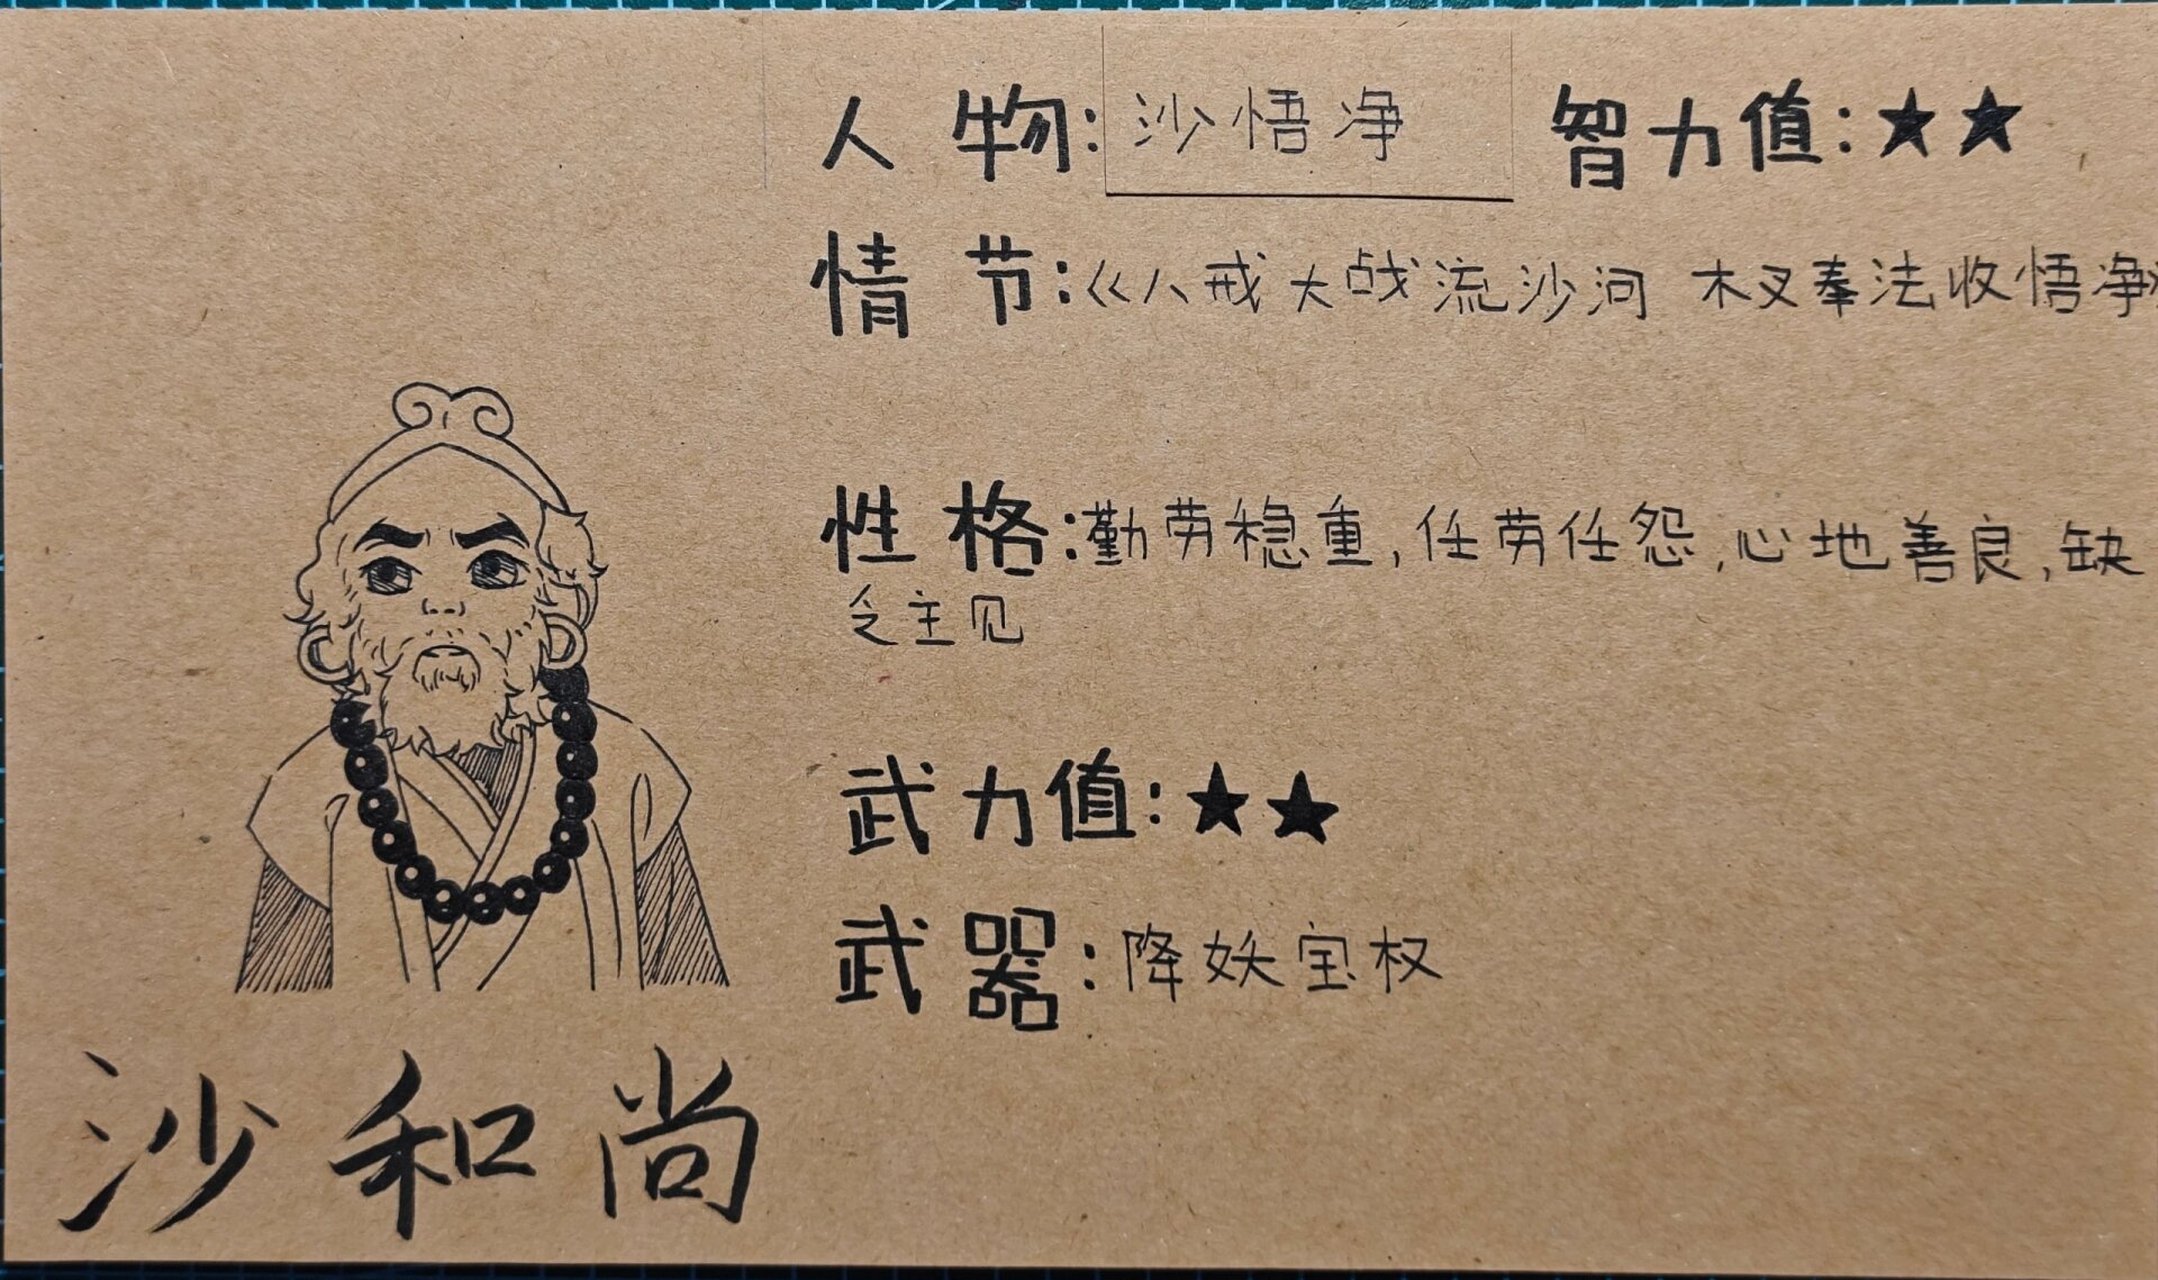 人物:沙悟净 智力值:★★
情节:《八戒大战流沙河 木叉奉法收悟净》
性格:勤劳稳重,任劳任怨,心地善良,缺
乏主见
武力值:★★
武器:降妖宝杖
沙和尚